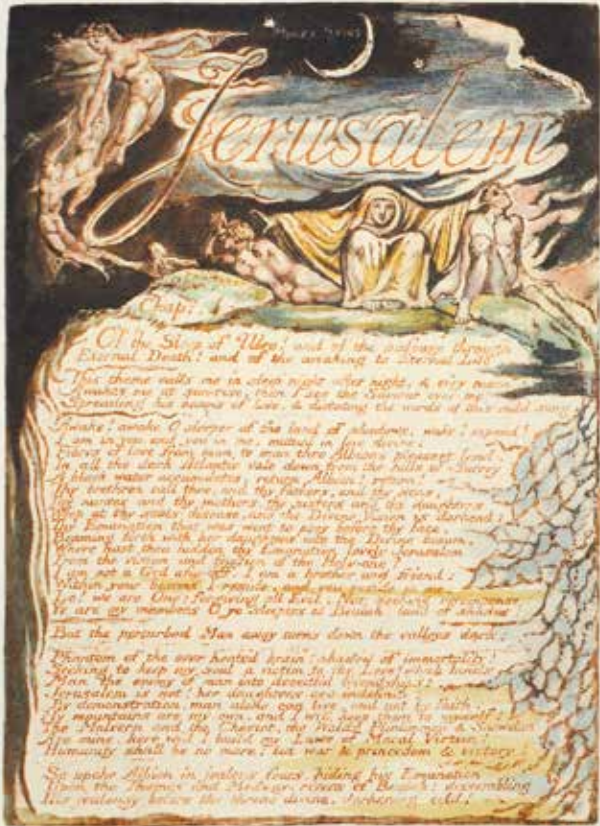 Jerusalem
Chap:
Of the Sleep of Ulro! and of the passage through
Eternal Death! and of the awaking to Eternal Life
This theme calls me in sleep night after night, & ev'ry morn
Awakes me at sun-rise, then I see the Saviour over me
Spreading his beams of love, & dictating the words of this mild song
Awake! awake O sleeper of the land of shadows, wake! expand!
I am in you and you in me, mutual in love divine:
Fibres of love from man to man thro Albions pleasant land.
In all the dark Atlantic vale down from the hills of Surrey
A black water accumulates, return Albion! return!
Thy brethren call thee, and thy fathers, and thy sons,
Thy nurses and thy mothers, thy sisters and thy daughters
Weep at thy souls disease, and the Divine Vision is darkend:
Thy Emanation that was wont to play before thy face,
Beaming forth with her daughters into the Divine bosom
Where hast thou hidden thy Emanation lovely Jerusalem
From the vision and fruition of the Holy-one?
I am not a God afar off, I am a brother and friend;
Within your bosoms I reside,
Lo! we are One; forgiving all Evil; Not seeking recompense
Ye are my members O ye sleepers of Beulah, land of shades!
But the perturbed Man away turns down the valleys dark;
Phantom of the over heated brain! shadow of immortality!
Seeking to keep my soul a victim to thy Love! which binds
Man the enemy of man into deceitful friendships:
Jerusalem is not! her daughters are indefinite:
By demonstration, man alone can live, and not by faith.
My mountains are my own, and I will keep them to myself:
The Malvern and the Cheviot, the Wolds Plinlimmon & Snowdon
Are mine. here will I build my Laws of Moral Virtue!
Humanity shall be no more: but war & princedom & victory
So spoke Albion in jealous fears, hiding his Emanation
Upon the Thames and Medway, rivers of Beulah: dissembling
His jealousy before the throne divine, darkening, cold!